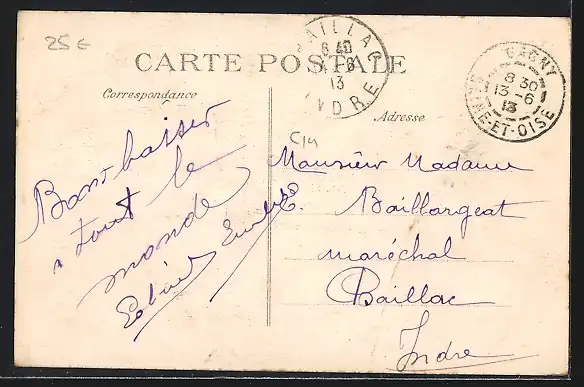 25 €
CARTE POSTALE
Correspondance
Adresse
AILLAC
6 40
-6
13
INDRE
GAGNY
8 30
13 -6
13
SEINE-ET-OISE
Bons baiser
a tout le
monde
Monsieur Madame
Baillargeat
maréchal
Baillac
Indre